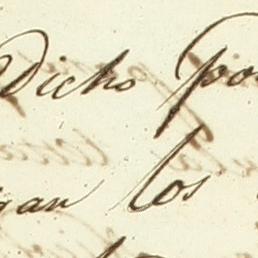 Dicho po
gan los